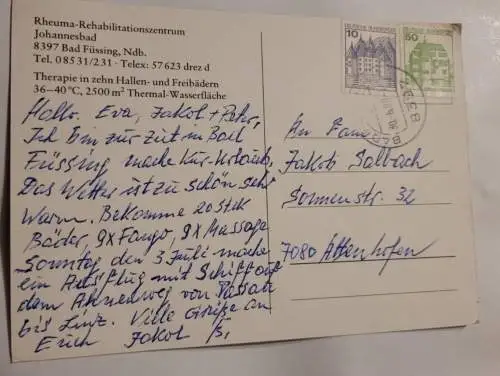 Rheuma-Rehabilitationszentrum
Johannesbad
8397 Bad Füssing, Ndb.
Tel. 0 85 31/231 · Telex: 57 623 drez d
Therapie in zehn Hallen- und Freibädern
36–40°C, 2500 m² Thermal-Wasserfläche
Hallo. Eva, Jakob +
Ich bin zur Zeit in Bad
Füssing mache Kur-Urlaub,
Das Wetter ist zu schön sehr
Warm. Bekomme 20 Stck
Bäder, 9x Fango, 9x Massage
Sonntag den 3 Juli mache
ein Ausflug mit Schiff auf
dem von Passau
bis Linz. Ville Grüße an
Erich Jakob
10
DEUTSCHE BUNDESPOST
50
8397
An Fam.
Jakob Salbach
Sonnenstr. 32
7080 Attenhofen